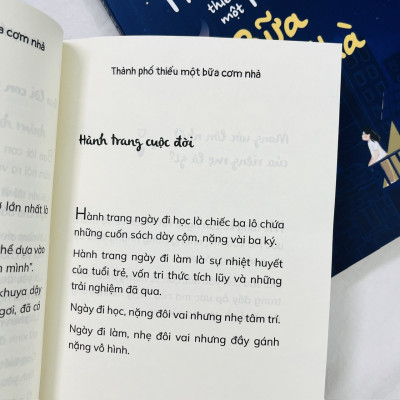 ữa cơm nhà
lớn nhất là
hề dựa vào
n mình".
khuya dậy
gơi, đã có
Thành phố thiếu một bữa cơm nhà
Hành trang cuộc đời
Hành trang ngày đi học là chiếc ba lô chứa
những cuốn sách dày cộm, nặng vài ba ký.
Hành trang ngày đi làm là sự nhiệt huyết
của tuổi trẻ, vốn tri thức tích lũy và những
trải nghiệm đã qua.
Ngày đi học, nặng đôi vai nhưng nhẹ tâm trí.
Ngày đi làm, nhẹ đôi vai nhưng đầy gánh
nặng vô hình.
thiế
một
Bữa
hà